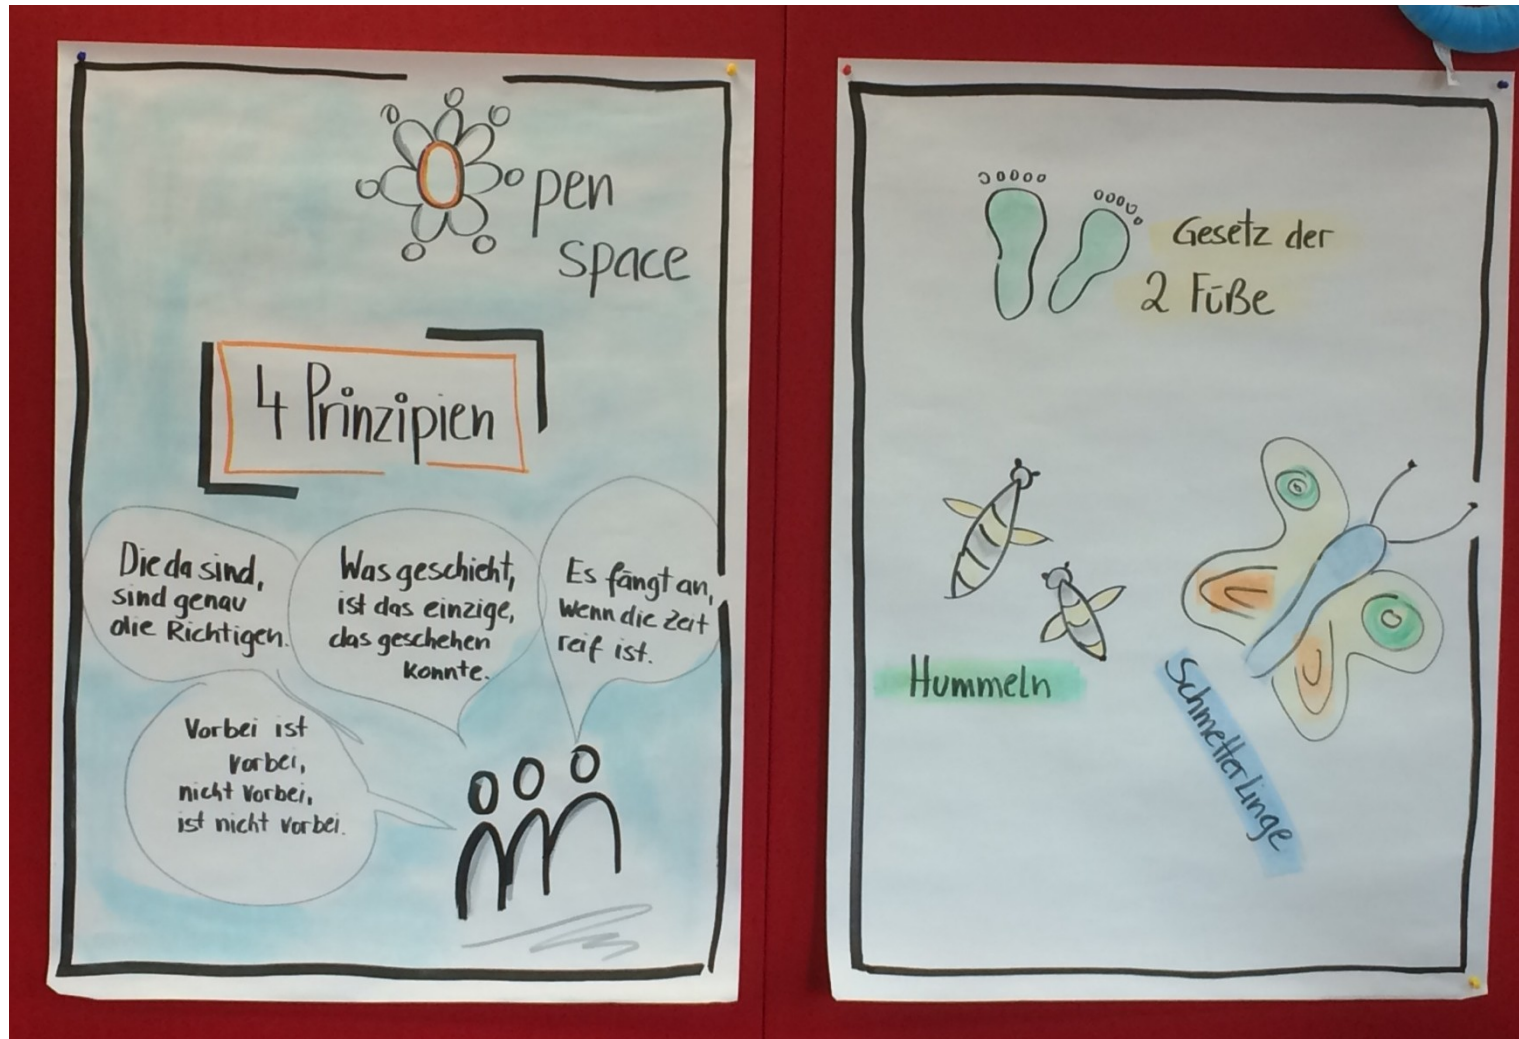 Open
space
4 Prinzipien
Die da sind,
sind genau
die Richtigen.
Was geschieht,
ist das einzige,
das geschehen
konnte.
Es fängt an,
wenn die Zeit
reif ist.
Vorbei ist
vorbei,
nicht vorbei,
ist nicht vorbei.
Gesetz der
2 Füße
Hummeln
Schmetterlinge